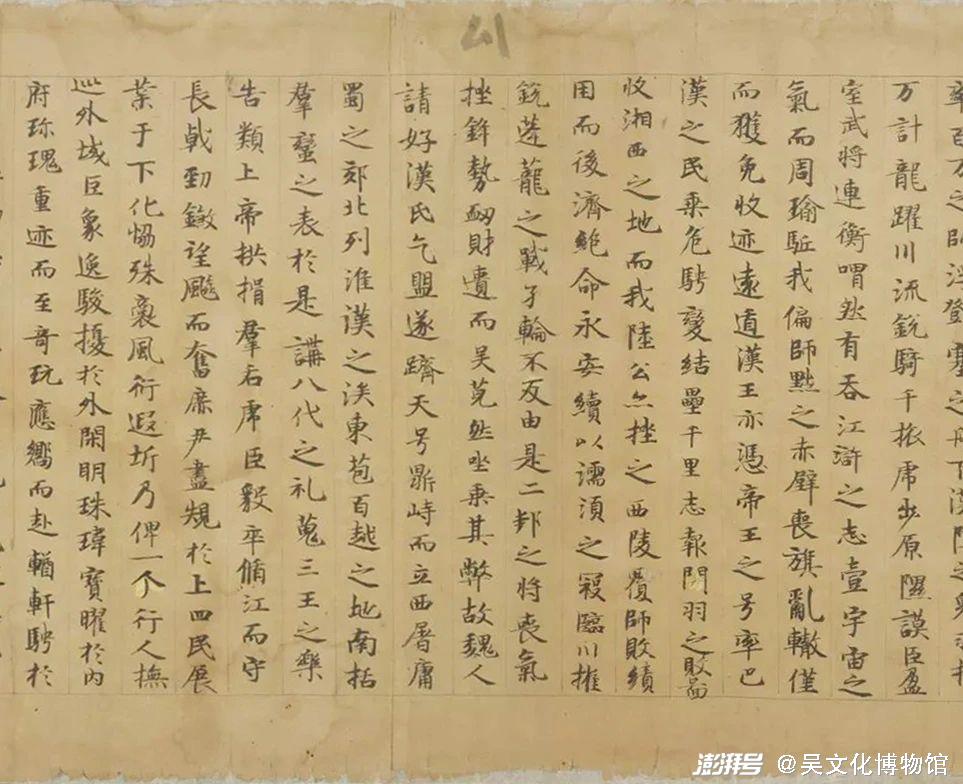 率百万之師浮鄧塞之舟下漢陰之眾
万計龍躍川流銳騎千旅虎步原隰謨臣盈
室武將連衡喟然有吞江滸之志壹宇宙之
氣而周瑜駈我偏師黜之赤壁喪旗亂轍僅
而獲免收迹遠遁漢王亦憑帝王之号率巴
漢之民乘危騁變結壘千里志報關羽之敗圖
收湘西之地而我陸公亦挫之西陵覆師敗績
困而後濟絕命永安續以濡湏之寇臨川摧
銳蓬蘢之戰孑輪不反由是二邦之將喪氣
挫鋒勢衂財遺而吴莞然坐乘其弊故魏人
請好漢氏乞盟遂躋天号鼎峙而立西屠庸
蜀之郊北列淮漢之涘東苞百越之地南括
羣蠻之表於是講八代之礼蒐三王之樂
告類上帝拱揖羣后虎臣毅卒脩江而守
長戟勁鎩望飈而奮庶尹盡規於上四民展
業于下化恊殊裔風衍遐圻乃俾一个行人撫
巡外域巨象逸駿擾於外閑明珠瑋寶曜於内
府珎瑰重迹而至竒玩應嚮而赴輶軒騁於
澎湃号 @吴文化博物馆